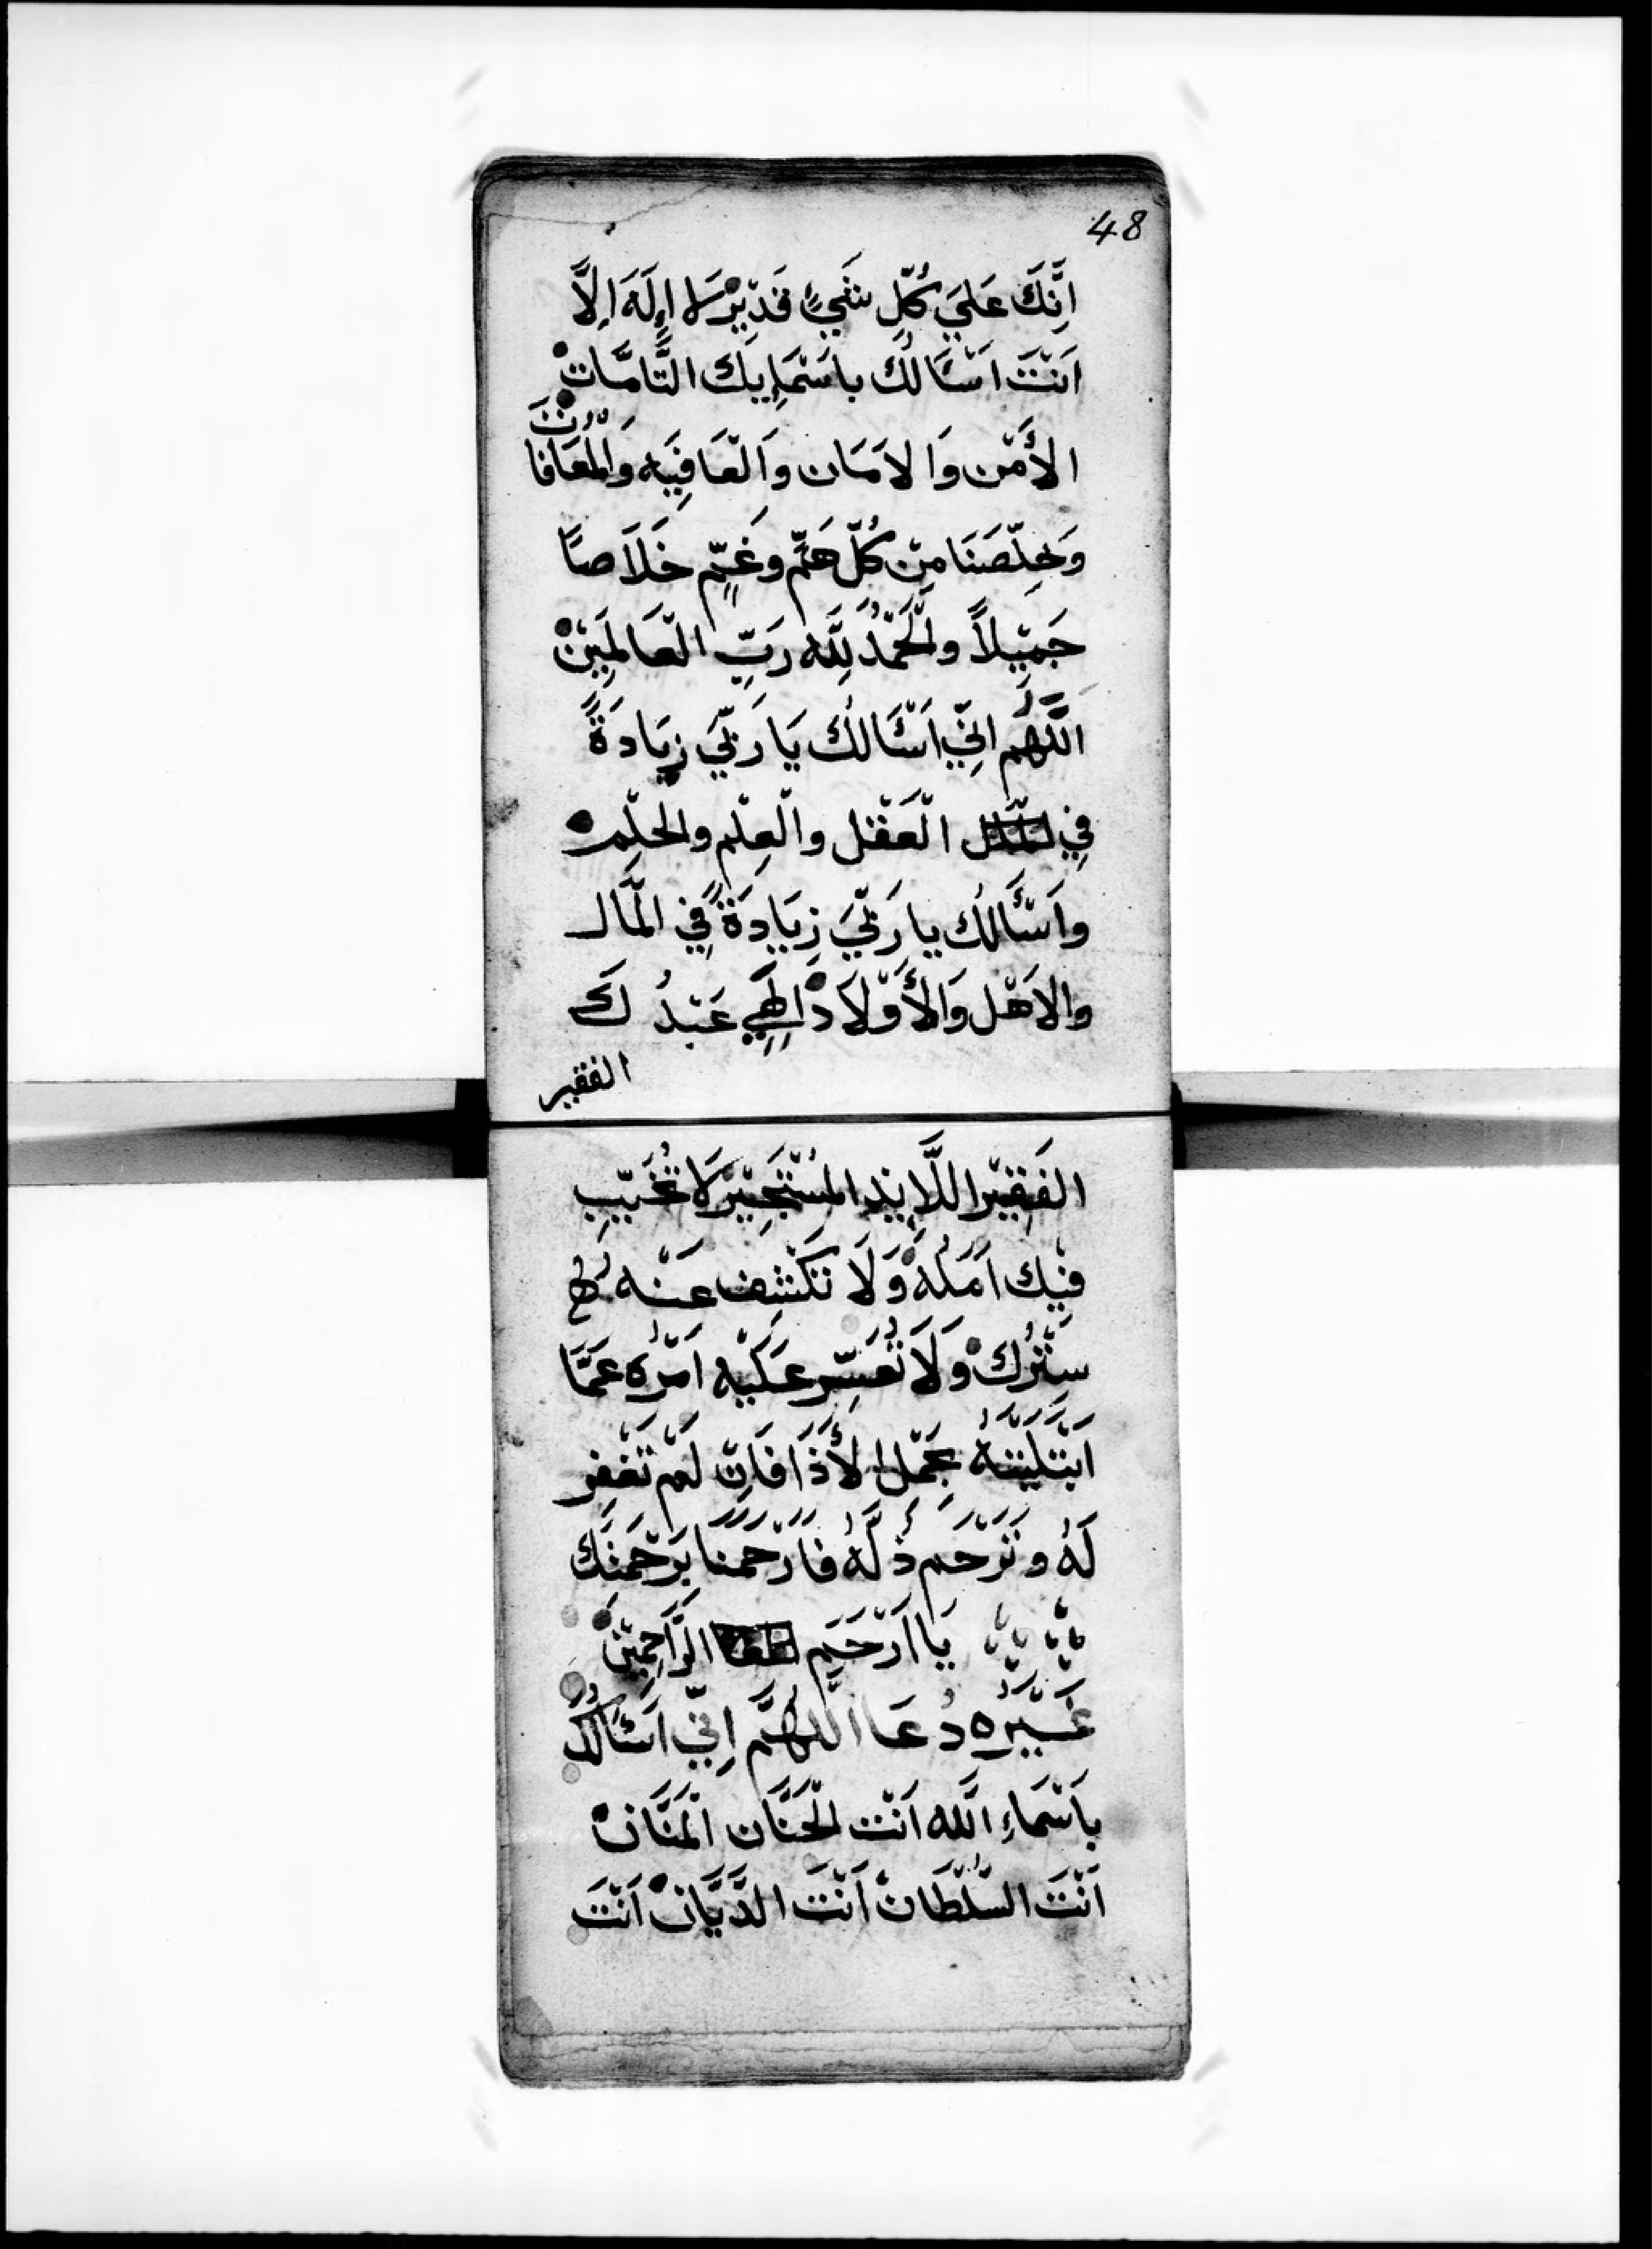 48
اِنَّكَ عَلَيَ كُلِّ شَيْءٍ قَدِيْرْ لَا اِلَهَ اِلَّا
اَنْتَ اَسْئَالُكَ باَسْمَايِكَ التَّامَّاتْ
الأَمْن وَالاَمَان وَالْعَافِيَه وَالْمُعَافَا
وَخلِّصَنَا مِنْ كُلّ هَمٍّ وغَمٍّ خَلَاصًا
جَمِيْلاً والْحَمْدُ لِلَّه رَبِّ الْعَالَمِيَنْ
اَللَّهُمَّ اِنِّي اَسْئَالُكَ يَا رَبِّيَ زِيَادَةً
فِي الْعَقْل والْعِلْم والحلْم
واَسْئَالُك يا رَبِّيَ زِيَادَةً فِي الْمَال
والاَهْل وَالأَوْلاَدْ اِلَهِي عَبْدُكَ
الفقير
الفَقِيْر اللَّايِذ المُسْتَجِيْر لَا تُخَيِّبِ
فِيْك اَمَلَهُ وَلَا تَكْشِف عَنْه
سِتْرُكْ وَلَا تُعَسِّر عَلَيْه اَمْرُه عَمَّا
اَبْتَلَيْتَهُ بحَمْل الأَذَا فَاِنْ لَمْ تَغْفِر
لَهُ وتَرْحَم ذُلَّهُ فَارْحَمنَا بِرَحْمَتِكَ
يَا اَرْحَم الرَّاحِمِيْن
غَيْرُه دُعَا اللهُمَّ اِنِّي اَسْئَالُكَ
باَسْمَاءِ اللَّه اَنْت الْحَنَّان الْمَنَّانْ
اَنْتَ السُّلْطَانْ اَنْتَ الدَّيَّانْ اَنْتَ